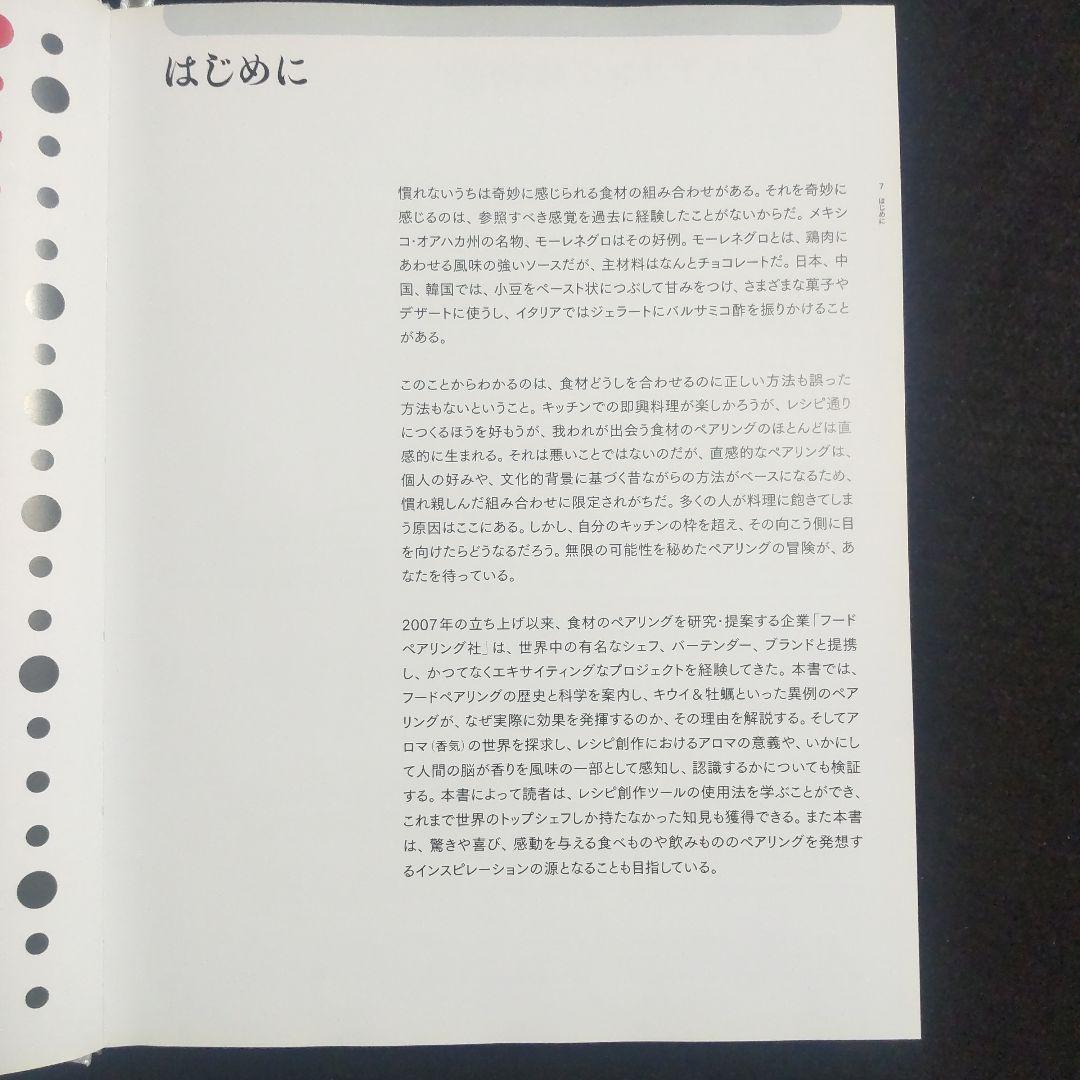 はじめに
慣れないうちは奇妙に感じられる食材の組み合わせがある。それを奇妙に
感じるのは、参照すべき感覚を過去に経験したことがないからだ。メキシ
コ・オアハカ州の名物、モーレネグロはその好例。モーレネグロとは、鶏肉に
あわせる風味の強いソースだが、主材料はなんとチョコレートだ。日本、中
国、韓国では、小豆をペースト状につぶして甘みをつけ、さまざまな菓子や
デザートに使うし、イタリアではジェラートにバルサミコ酢を振りかけること
がある。
このことからわかるのは、食材どうしを合わせるのに正しい方法も誤った
方法もないということ。キッチンでの即興料理が楽しかろうが、レシピ通り
につくるほうを好もうが、我われが出会う食材のペアリングのほとんどは直
感的に生まれる。それは悪いことではないのだが、直感的なペアリングは、
個人の好みや、文化的背景に基づく昔ながらの方法がベースになるため、
慣れ親しんだ組み合わせに限定されがちだ。多くの人が料理に飽きてしま
う原因はここにある。しかし、自分のキッチンの枠を超え、その向こう側に目
を向けたらどうなるだろう。無限の可能性を秘めたペアリングの冒険が、あ
なたを待っている。
2007年の立ち上げ以来、食材のペアリングを研究・提案する企業「フード
ペアリング社」は、世界中の有名なシェフ、バーテンダー、ブランドと提携
し、かつてなくエキサイティングなプロジェクトを経験してきた。本書では、
フードペアリングの歴史と科学を案内し、キウイ＆牡蠣といった異例のペア
リングが、なぜ実際に効果を発揮するのか、その理由を解説する。そしてア
ロマ（香気）の世界を探求し、レシピ創作におけるアロマの意義や、いかにし
て人間の脳が香りを風味の一部として感知し、認識するかについても検証
する。本書によって読者は、レシピ創作ツールの使用法を学ぶことができ、
これまで世界のトップシェフしか持たなかった知見も獲得できる。また本書
は、驚きや喜び、感動を与える食べものや飲みもののペアリングを発想す
るインスピレーションの源となることも目指している。
7 はじめに